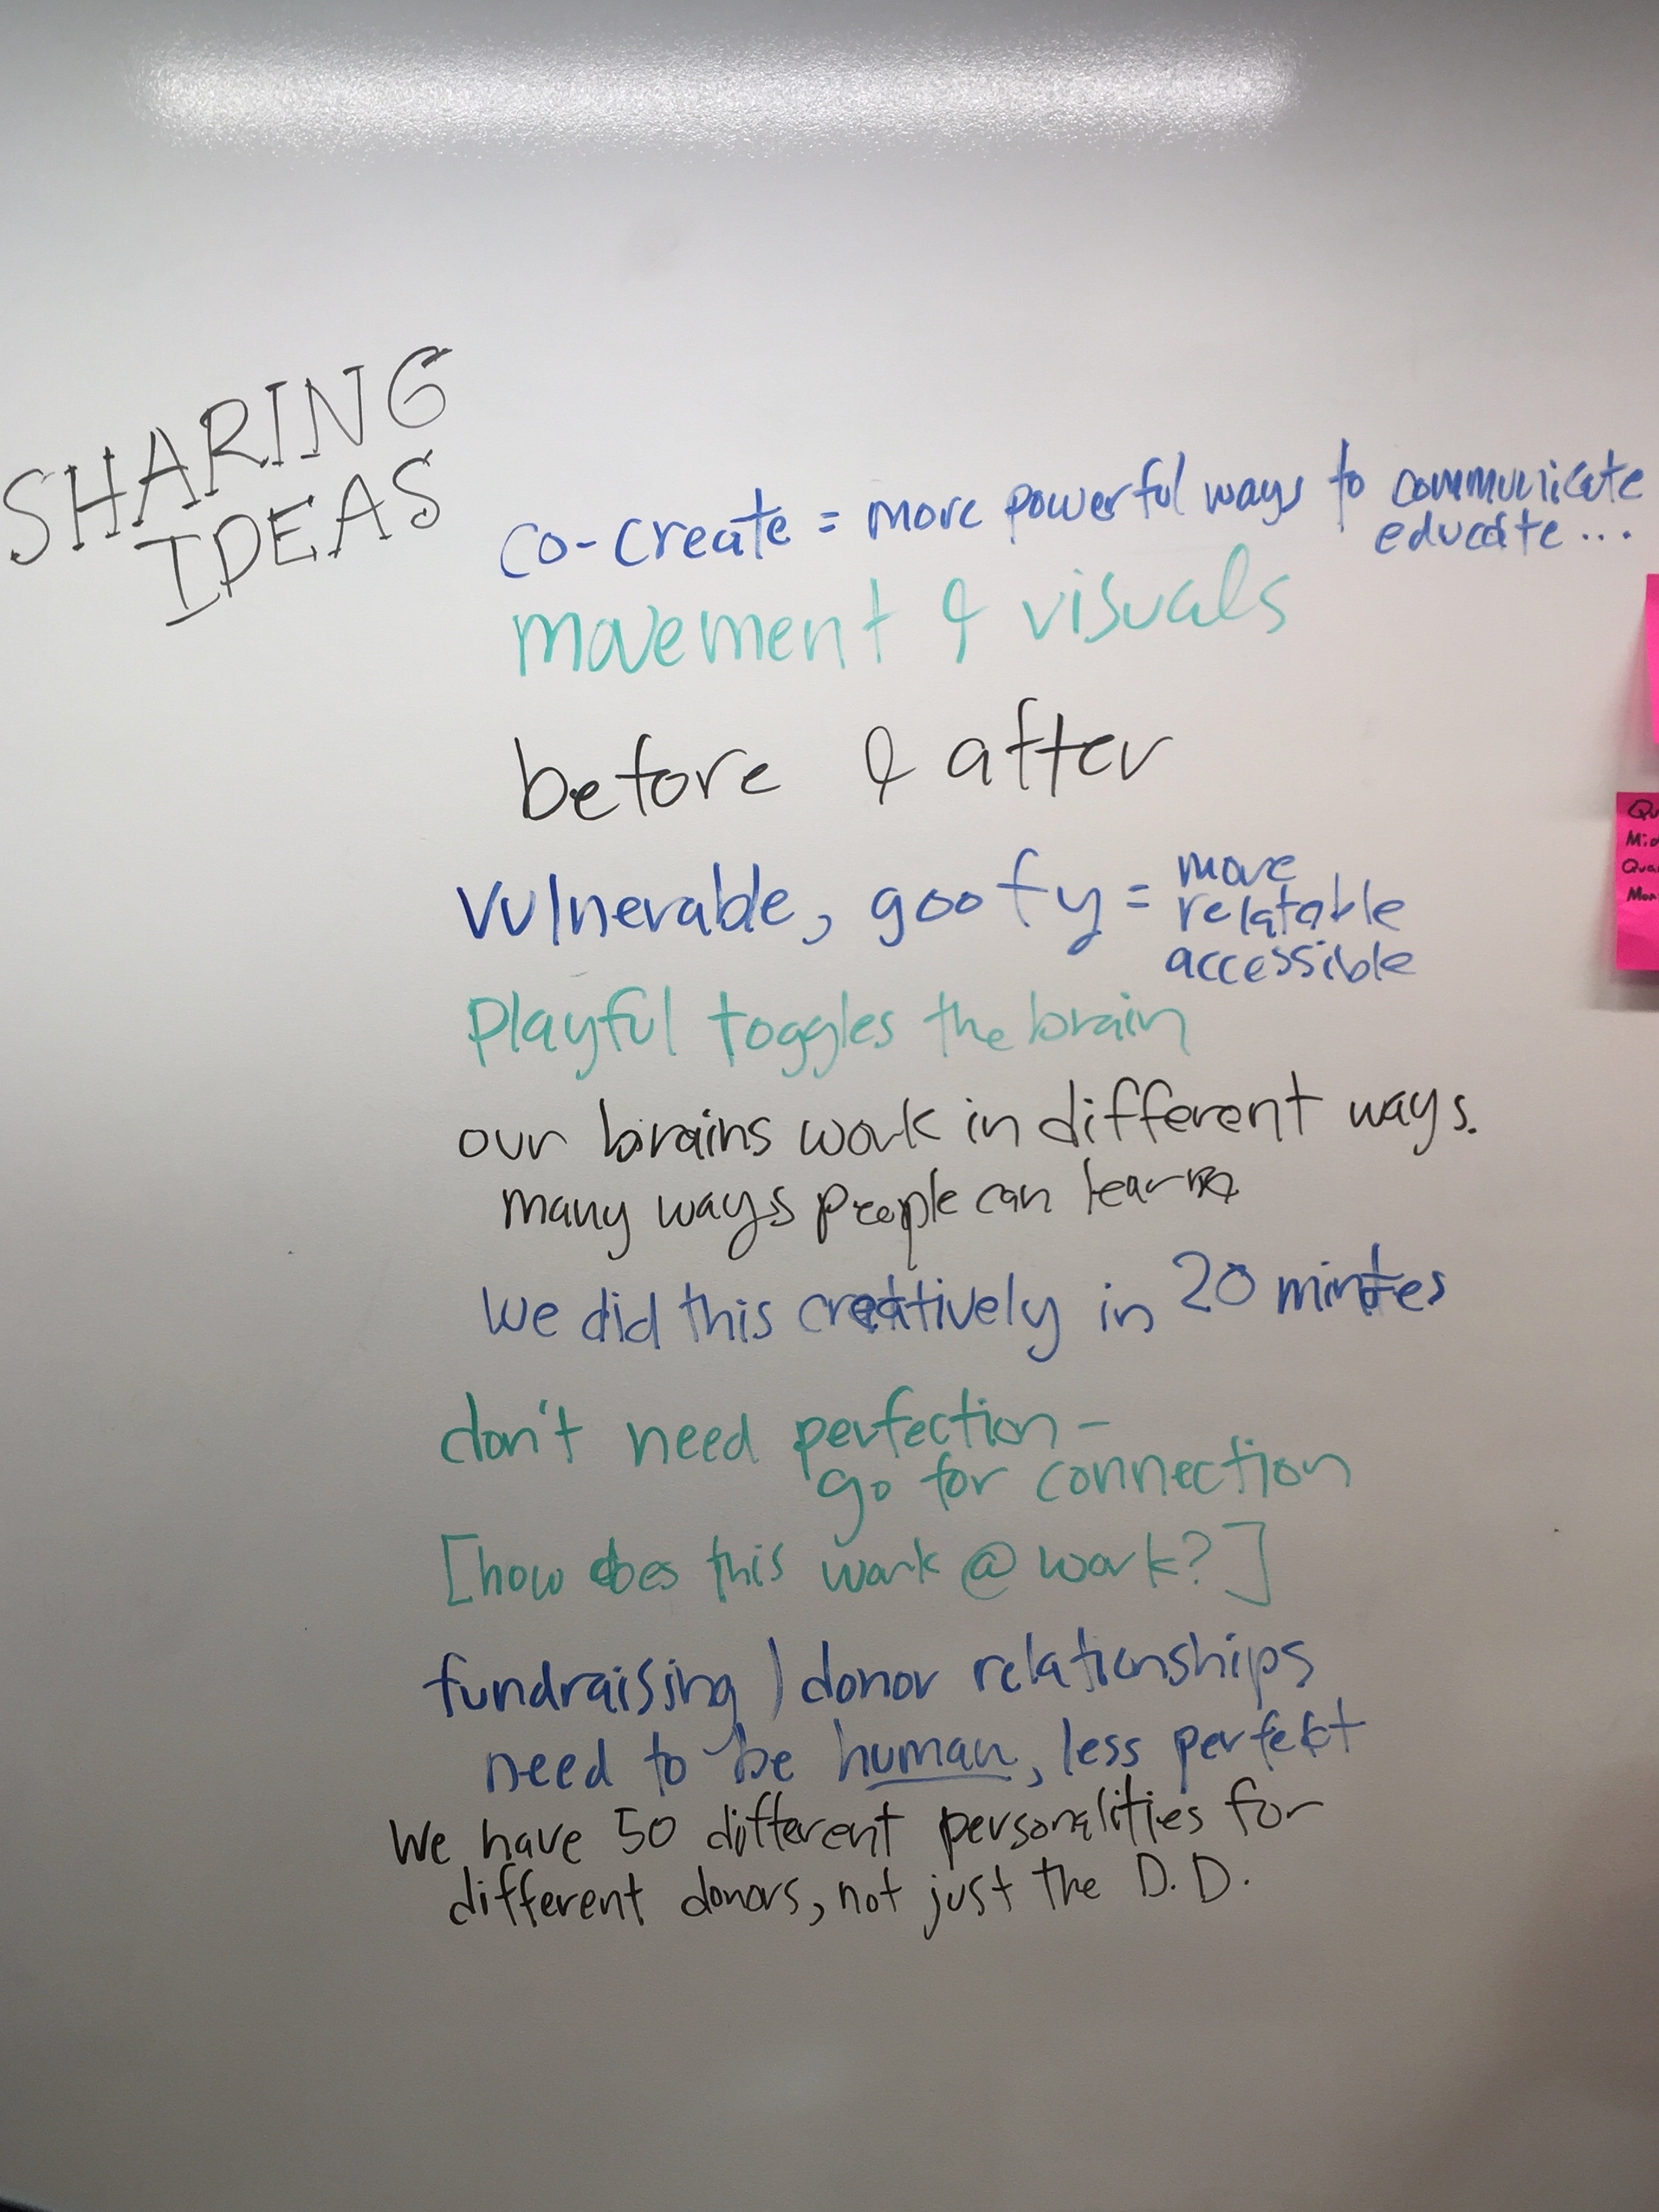 SHARING
IDEAS
co-create = more powerful ways to communicate
educate...
movement & visuals
before & after
vulnerable, goofy = more
relatable
accessible
Playful toggles the brain
our brains work in different ways.
many ways people can learn
We did this creatively in 20 mintes
don't need perfection -
go for connection
[how does this work @ work?]
fundraising) donor relationships
need to be human, less perfekt
We have 50 different personalities for
different donors, not just the D.D.